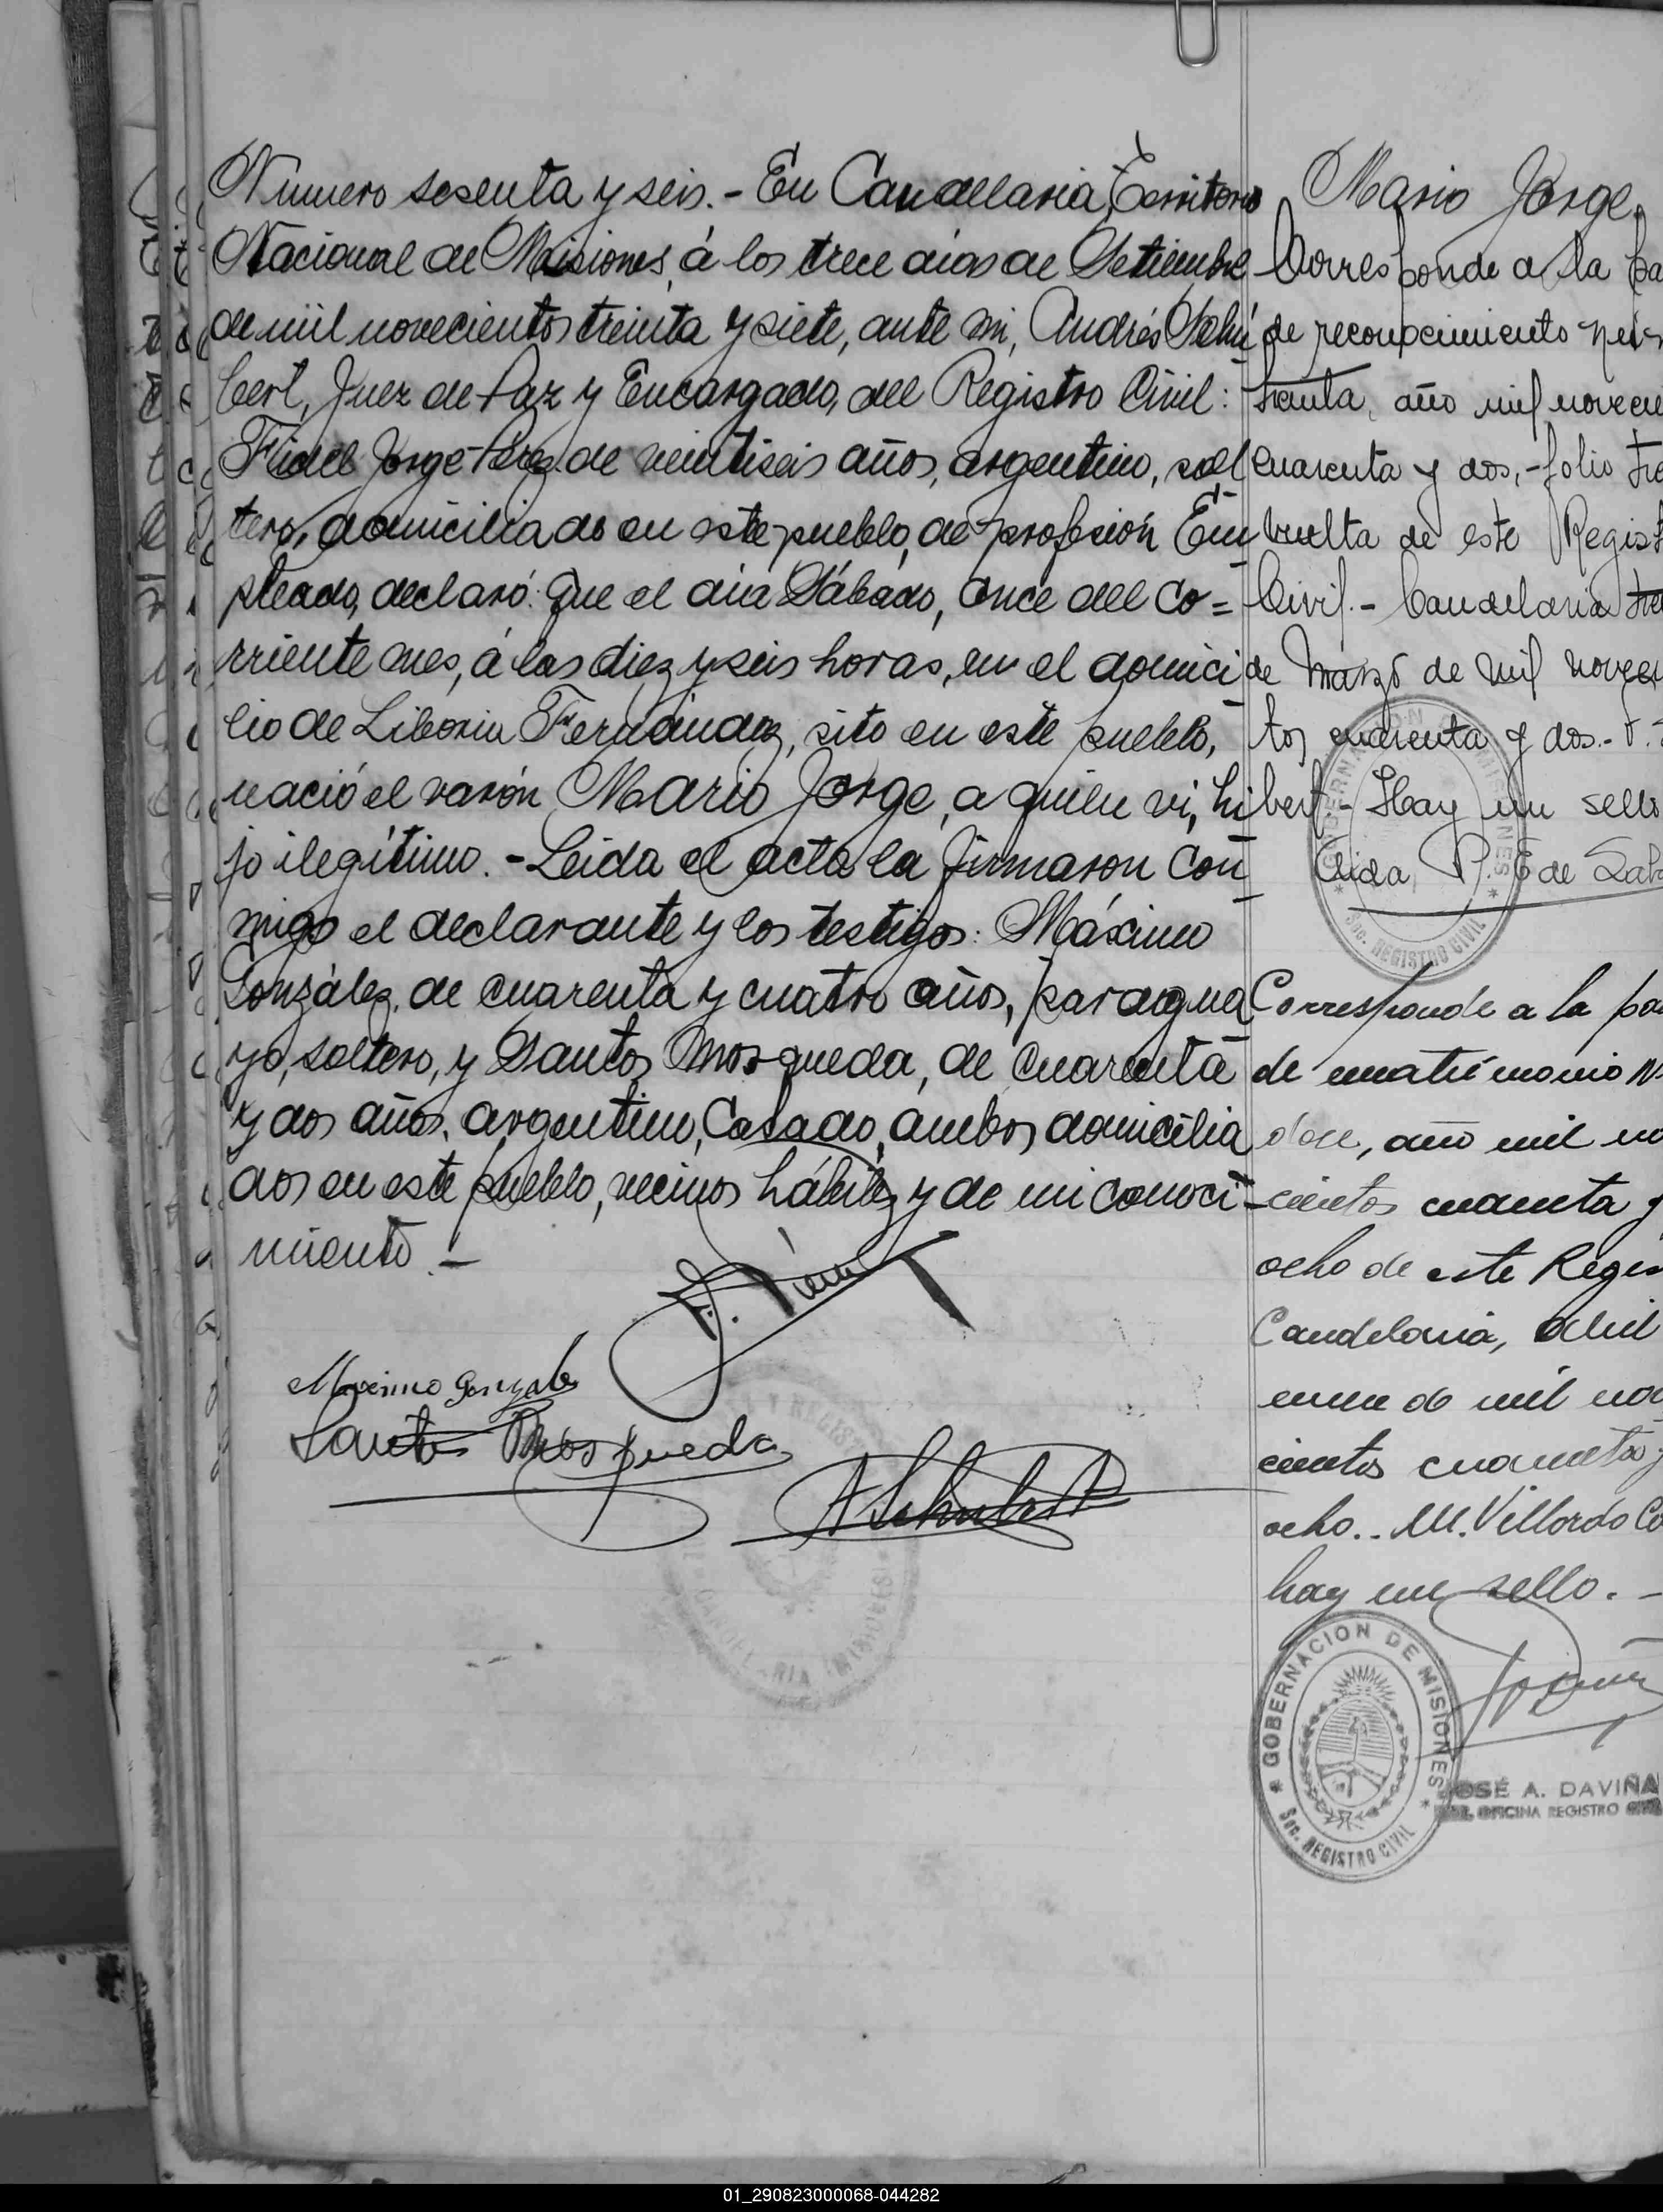 Número sesenta y seis.- En Candelaria, Territorio
Nacional de Misiones, á los trece dias de Setiembre
de mil novecientos treinta y siete, ante mi, Andrés Schú
bert, Juez de Paz y Encargado, del Registro Civil:
Fidel Jorge Perez de veintiseis años, argentino, sol
tero, domiciliado en este pueblo, de profesión Em
pleado, declaró: Que el dia Sábado, once del co=
rriente mes, á las diez y seis horas, en el domici
lio de Liboria Fernández, sito en este pueblo,
nació el varón Mario Jorge, a quien vi, hi
jo ilegítimo.- Leida el acta la firmaron con
migo el declarante y los testigos: Máximo
González, de cuarenta y cuatro años, paragua
yo, soltero, y Santos Mosqueda, de cuarenta
y dos años, argentino, Casado, ambos domicilia
dos en este pueblo, vecinos hábiles y de mi conoci-
miento.-
Maximo Gonzalez
Santos Mosqueda
A Schubert
CANDELARIA (MISIONES)
Mario Jorge.
Corresponde a la pa
de reconocimiento
treinta, año mil novecie
cuarenta y dos,- folio
vuelta de este Regist
Civil.- Candelaria
de Marzo de mil novecie
tos cuarenta y dos.-
bert- Hay un sello
Aida P. de
GOBERNACION DE MISIONES
Sec. REGISTRO CIVIL
Corresponde a la pa
de matrimonio N
doce, año mil no
cientos cuarenta y
ocho de este Regis
Candelaria, Abril
de mil nov
cientos cuarenta y
ocho.. M. Villordo
hay un sello.-
GOBERNACION DE MISIONES
Sec. REGISTRO CIVIL
JOSÉ A. DAVIÑA
OFICINA REGISTRO CIVIL
01_290823000068-044282